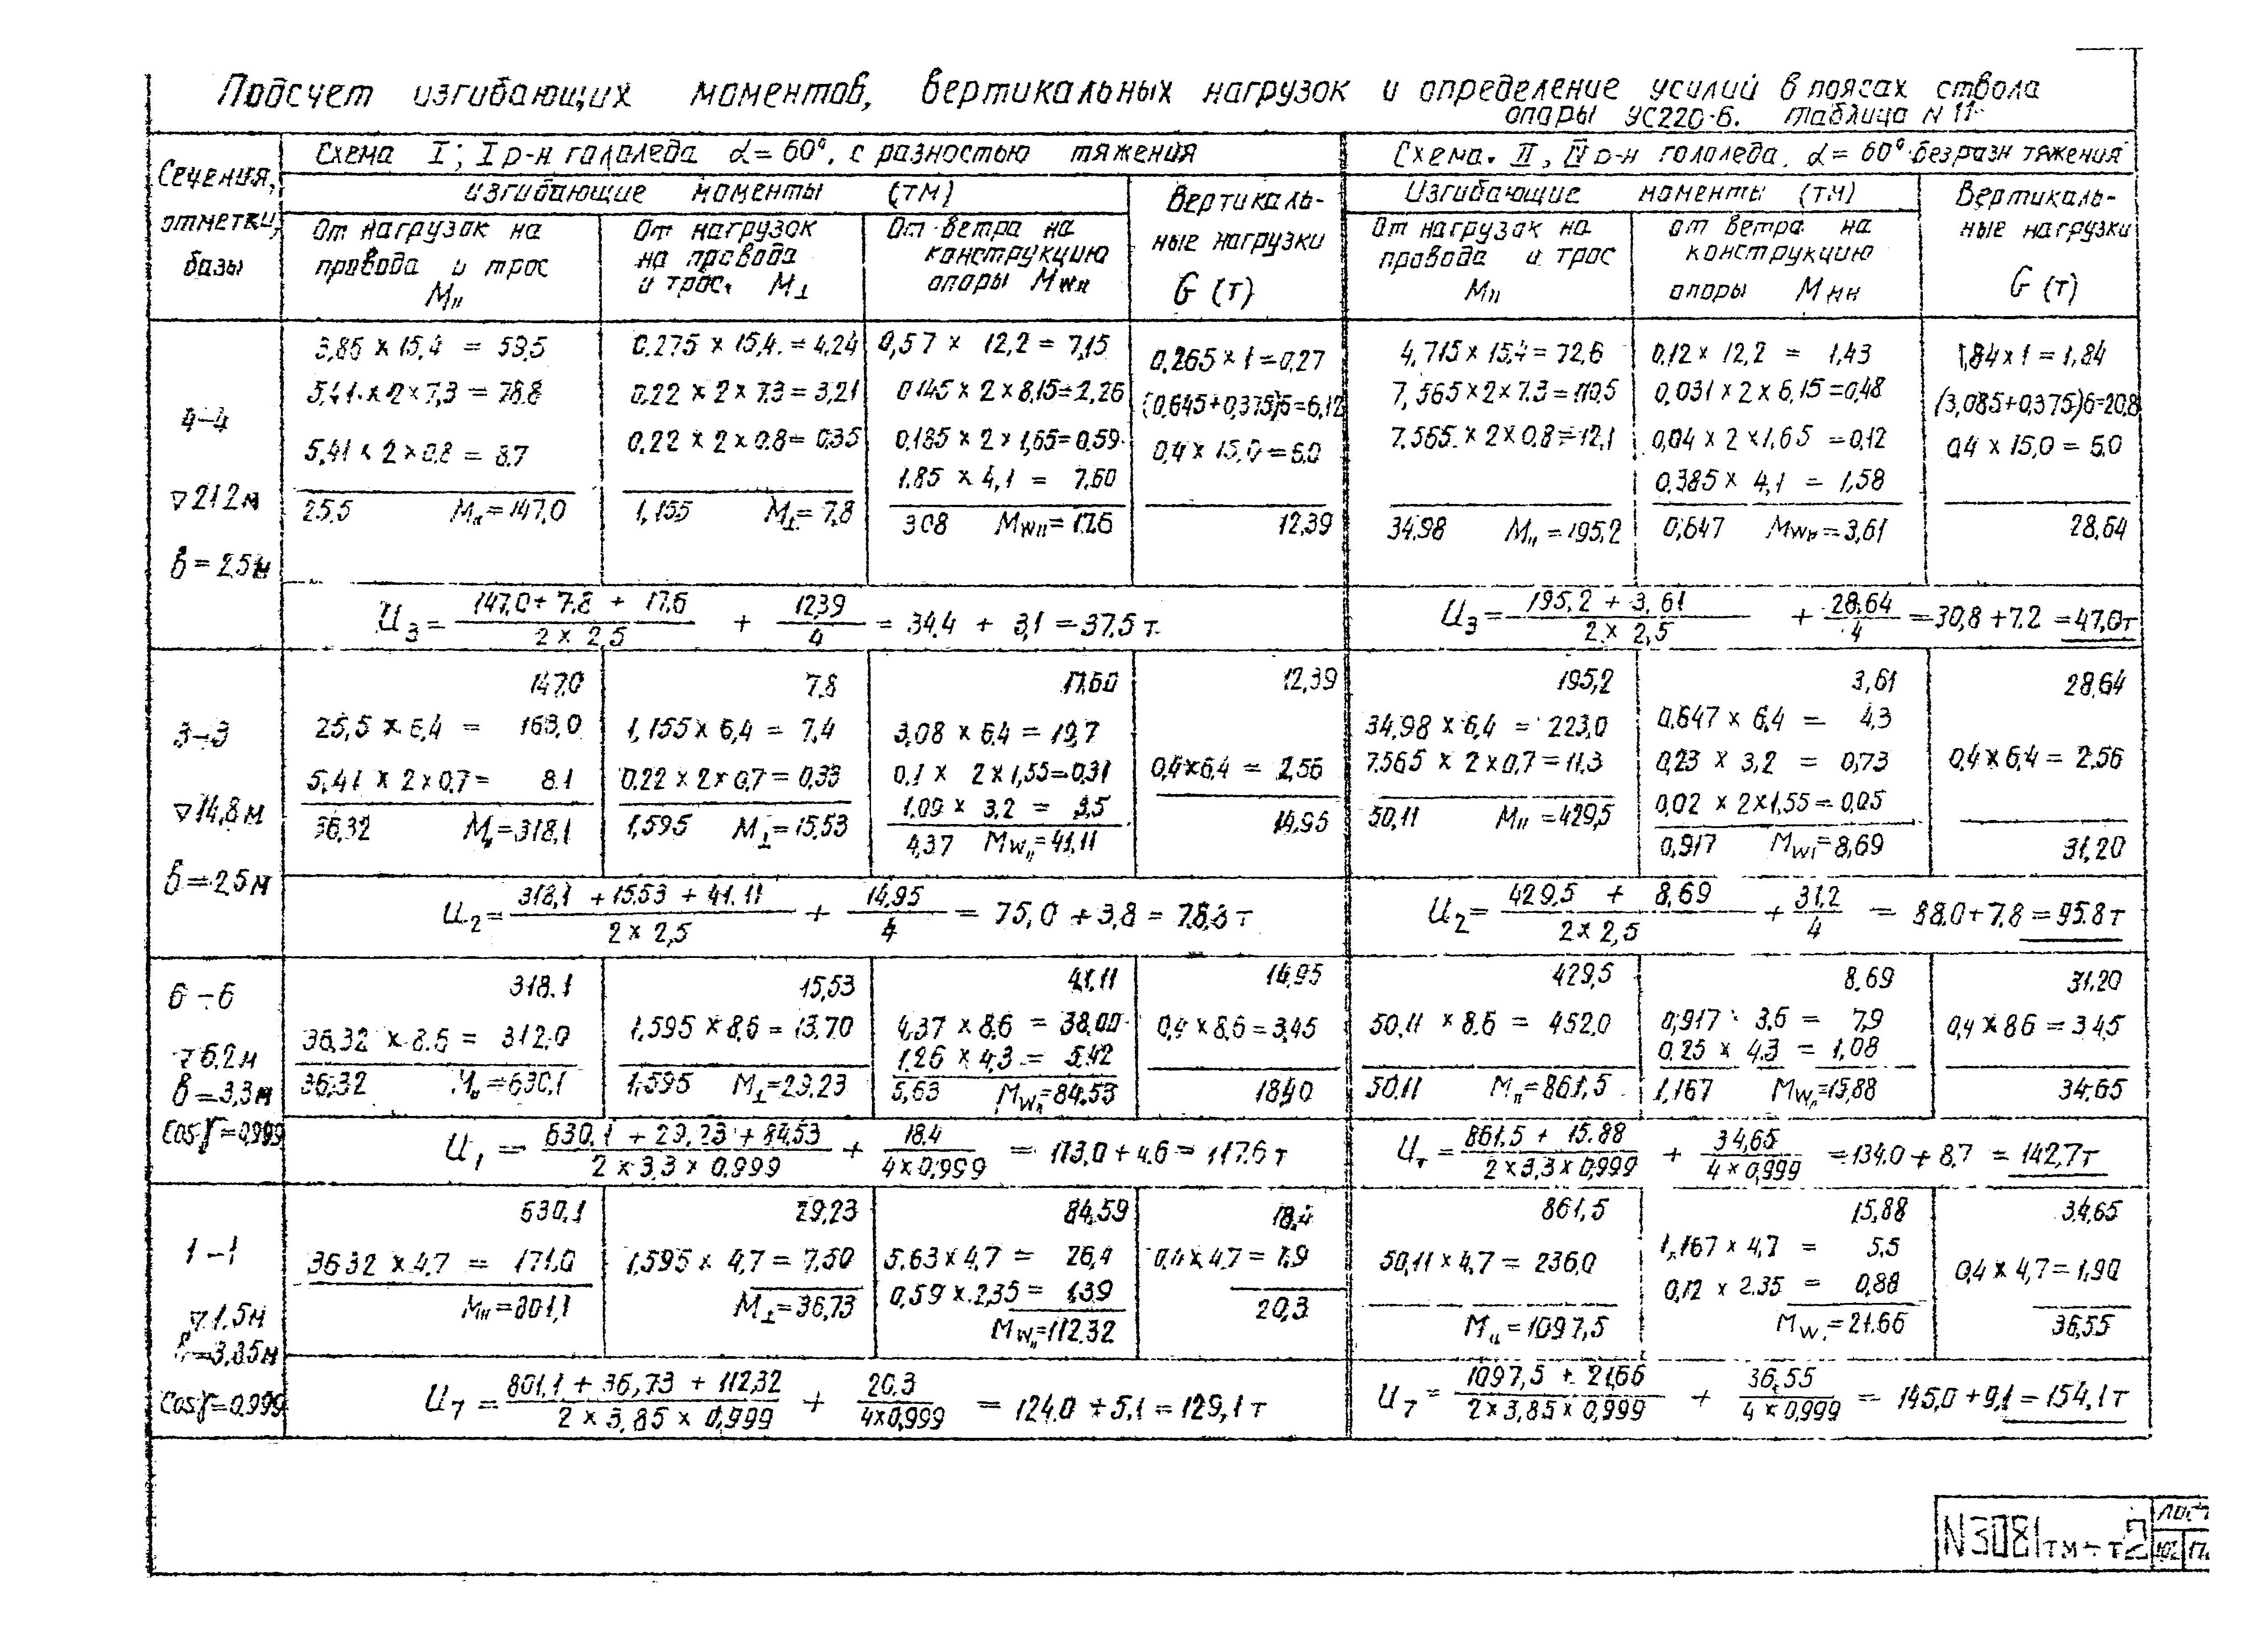 Подсчет изгибающих моментов, вертикальных нагрузок и определение усилий в поясах ствола
опоры УС220-6. таблица N 11
Сечения,
отметки,
базы
Схема I; I р-н гололеда α=60°, с разностью тяжения
изгибающие моменты (тм)
От нагрузок на
провода и трос
M||
От нагрузок
на провода
и трос. M⊥
От ветра на
конструкцию
опоры Mw||
Вертикаль-
ные нагрузки
G (т)
Схема. II, IV р-н гололеда, α=60° без разн тяжения
Изгибающие моменты (тм)
От нагрузок на
провода и трос
M||
от ветра на
конструкцию
опоры
Вертикаль-
ные нагрузки
G (т)
4-4
▽21,2м
б=2,5м
3,85 × 15,4 = 59,5
5,41 × 2 × 7,3 = 78.8
5,41 × 2 × 0,8 = 8.7
25,5 M||=147,0
0.275 × 15,4. = 4,24
0.22 × 2 × 7.3 = 3,21
0.22 × 2 × 0.8 = 0,35
1,155 M⊥= 7,8
0,57 × 12,2 = 7,15
0,145 × 2 × 8,15=2,26
0.185 × 2 × 1,65=0.59
1.85 × 4,1 = 7.60
3.08 Mw||=17.6
0.265 × 1 = 0,27
(0,645+0,375)6=6,12
0,4 × 15,0 = 6,0
12,39
4,715 × 15,4 = 72,6
7,565×2×7.3=110,5
7.565 × 2 × 0,8=12,1
34.98 M||=195,2
0.12 × 12,2 = 1,43
0,031 × 2 × 6,15=0,48
0,04 × 2 × 1,65 =0,12
0,385 × 4,1 = 1,58
0,647 Mw||=3,61
1,84 × 1 = 1,84
(3,085+0,375)6=20.8
0,4 × 15,0 = 6,0
28,64
U3= 147,0+ 7.8 + 17.6 / 2 × 2,5 + 12,39 / 4 = 34.4 + 3,1 = 37.5 т.
U3= 195,2 + 3,61 / 2 × 2,5 + 28.64 / 4 = 30,8 + 7.2 = 47,0т
3-3
▽14,8м
б=2,5м
147,0
25,5 × 6,4 = 163,0
5,41 × 2 × 0,7= 8.1
36,32 M||=318,1
7,8
1,155 × 6,4 = 7,4
0.22 × 2 × 0,7 = 0,33
1,595 M⊥=15,53
17,60
3,08 × 6,4 = 19,7
0,1 × 2 × 1,55=0,31
1,09 × 3,2 = 3,5
4,37 Mw||=41,11
12,39
0,4×6,4 = 2,56
14,95
195,2
34,98 × 6,4 = 223,0
7.565 × 2 × 0,7=11,3
50,11 M||=429,5
3,61
0,647 × 6,4 = 4,3
0,23 × 3,2 = 0,73
0,02 × 2×1,55=0,05
0,917 Mw||=8,69
28.64
0,4 × 6,4 = 2,56
31,20
U2= 318,1 + 15.53 + 41.11 / 2 × 2,5 + 14,95 / 4 = 75,0 + 3,8 = 78,8 т
U2= 429,5 + 8,69 / 2×2,5 + 31,2 / 4 = 88.0+7,8 = 95.8т
6-6
▽6,2м
б=3,3м
Cosγ=0,999
318.1
36,32 × 8.6 = 312,0
36,32 M||=630,1
15,53
1,595 × 8,6 = 13,70
1,595 M⊥=29,23
41,11
4,37 × 8,6 = 38,00
1,26 × 4,3 = 5,42
5,63 Mw||=84,53
14,95
0,4 × 8,6 = 3,45
18,40
429,5
50,11 × 8.6 = 432.0
50.11 M||=861,5
8.69
7,9
0.25 × 4,3 = 1,08
1,167 Mw||=15,88
31.20
0,4 × 8.6 = 3,45
34.65
U1= 630,1 + 29,23 + 84,53 / 2 × 3,3 × 0,999 + 18.4 / 4×0,999 = 113,0 + 4.6 = 117.6 т
861.5 + 15.88 / 2×3,3×0,999 + 34,65 / 4×0,999 = 134.0 + 8.7 = 142,7т
1-1
▽1,5м
б=3,85м
Cosγ=0,999
630,1
36,32 × 4,7 = 171,0
M||=801,1
29,23
1,595 × 4,7 = 7,50
M⊥=36,73
84,59
5,63 × 4,7 = 26,4
0,59 × 2,35 = 1,39
Mw||=112,32
18,4
0,4 × 4,7 = 1,9
20,3
861,5
50,11 × 4,7 = 236,0
M||=1097,5
15,88
1,167 × 4,7 = 5,5
0,12 × 2.35 = 0,88
Mw||=21.66
34,65
0,4 × 4,7=1,90
36,55
U7= 801,1 + 36,73 + 112,32 / 2 × 3,85 × 0,999 + 20,3 / 4×0,999 = 124,0 + 5,1 = 129,1 т
U7= 1097,5 + 21,66 / 2×3,85×0,999 + 36,55 / 4×0,999 = 145,0 + 9,1 = 154,1 т
N3081тм-т2
Лист
102